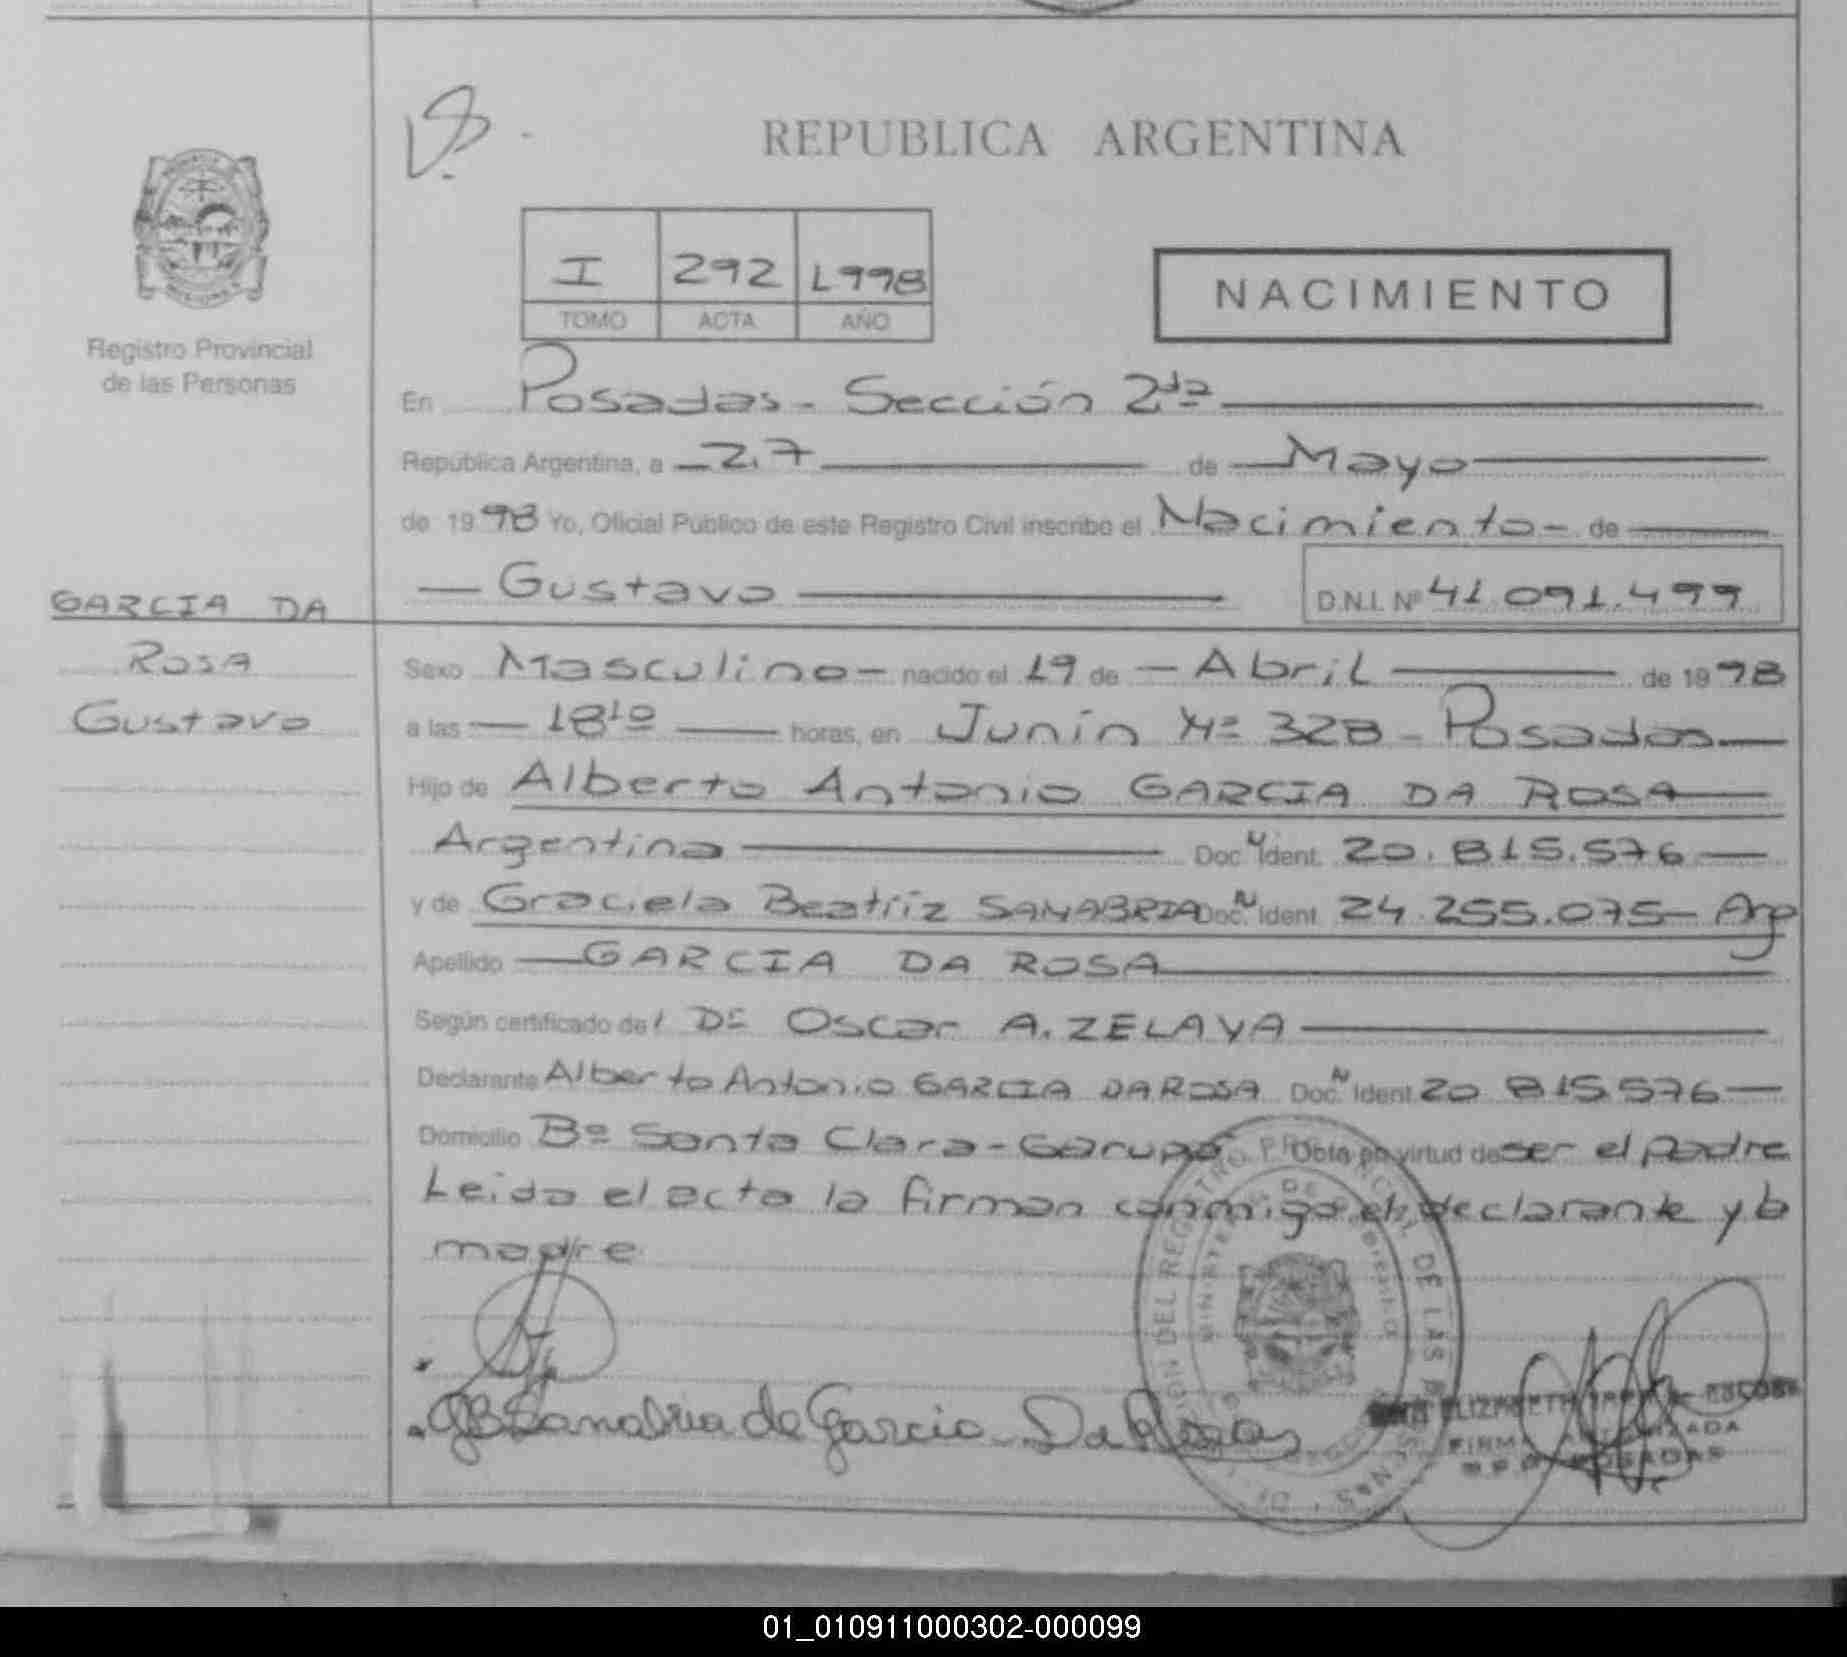 REPUBLICA ARGENTINA
I 292 1998
TOMO ACTA AÑO
NACIMIENTO
Registro Provincial
de las Personas
En Posadas - Sección 2da
República Argentina, a 27 de Mayo
de 1998 Yo, Oficial Público de este Registro Civil inscribo el Nacimiento - de
Gustavo D.N.I. Nº 41.091.499
GARCIA DA
ROSA
Gustavo
Sexo Masculino - nacido el 19 de - Abril de 1998
a las - 18¹⁰ horas, en Junín Nº 328 - Posadas
Hijo de Alberto Antonio GARCIA DA ROSA
Argentino Doc. N Ident. 20.815.576
y de Graciela Beatriz SANABRIA Doc. N Ident. 24.255.075 - Arg
Apellido GARCIA DA ROSA
Según certificado del Dr Oscar A. ZELAYA
Declarante Alberto Antonio GARCIA DA ROSA Doc. N Ident. 20 815576
Domicilio Bº Santa Clara - Garupá Obra en virtud de ser el padre
Leida el acta la firman conmigo el declarante y la
madre
GBSanabria de Garcia Da Rosa
ELIZABETH
FIRMA AUTORIZADA
POSADAS
01_010911000302-000099